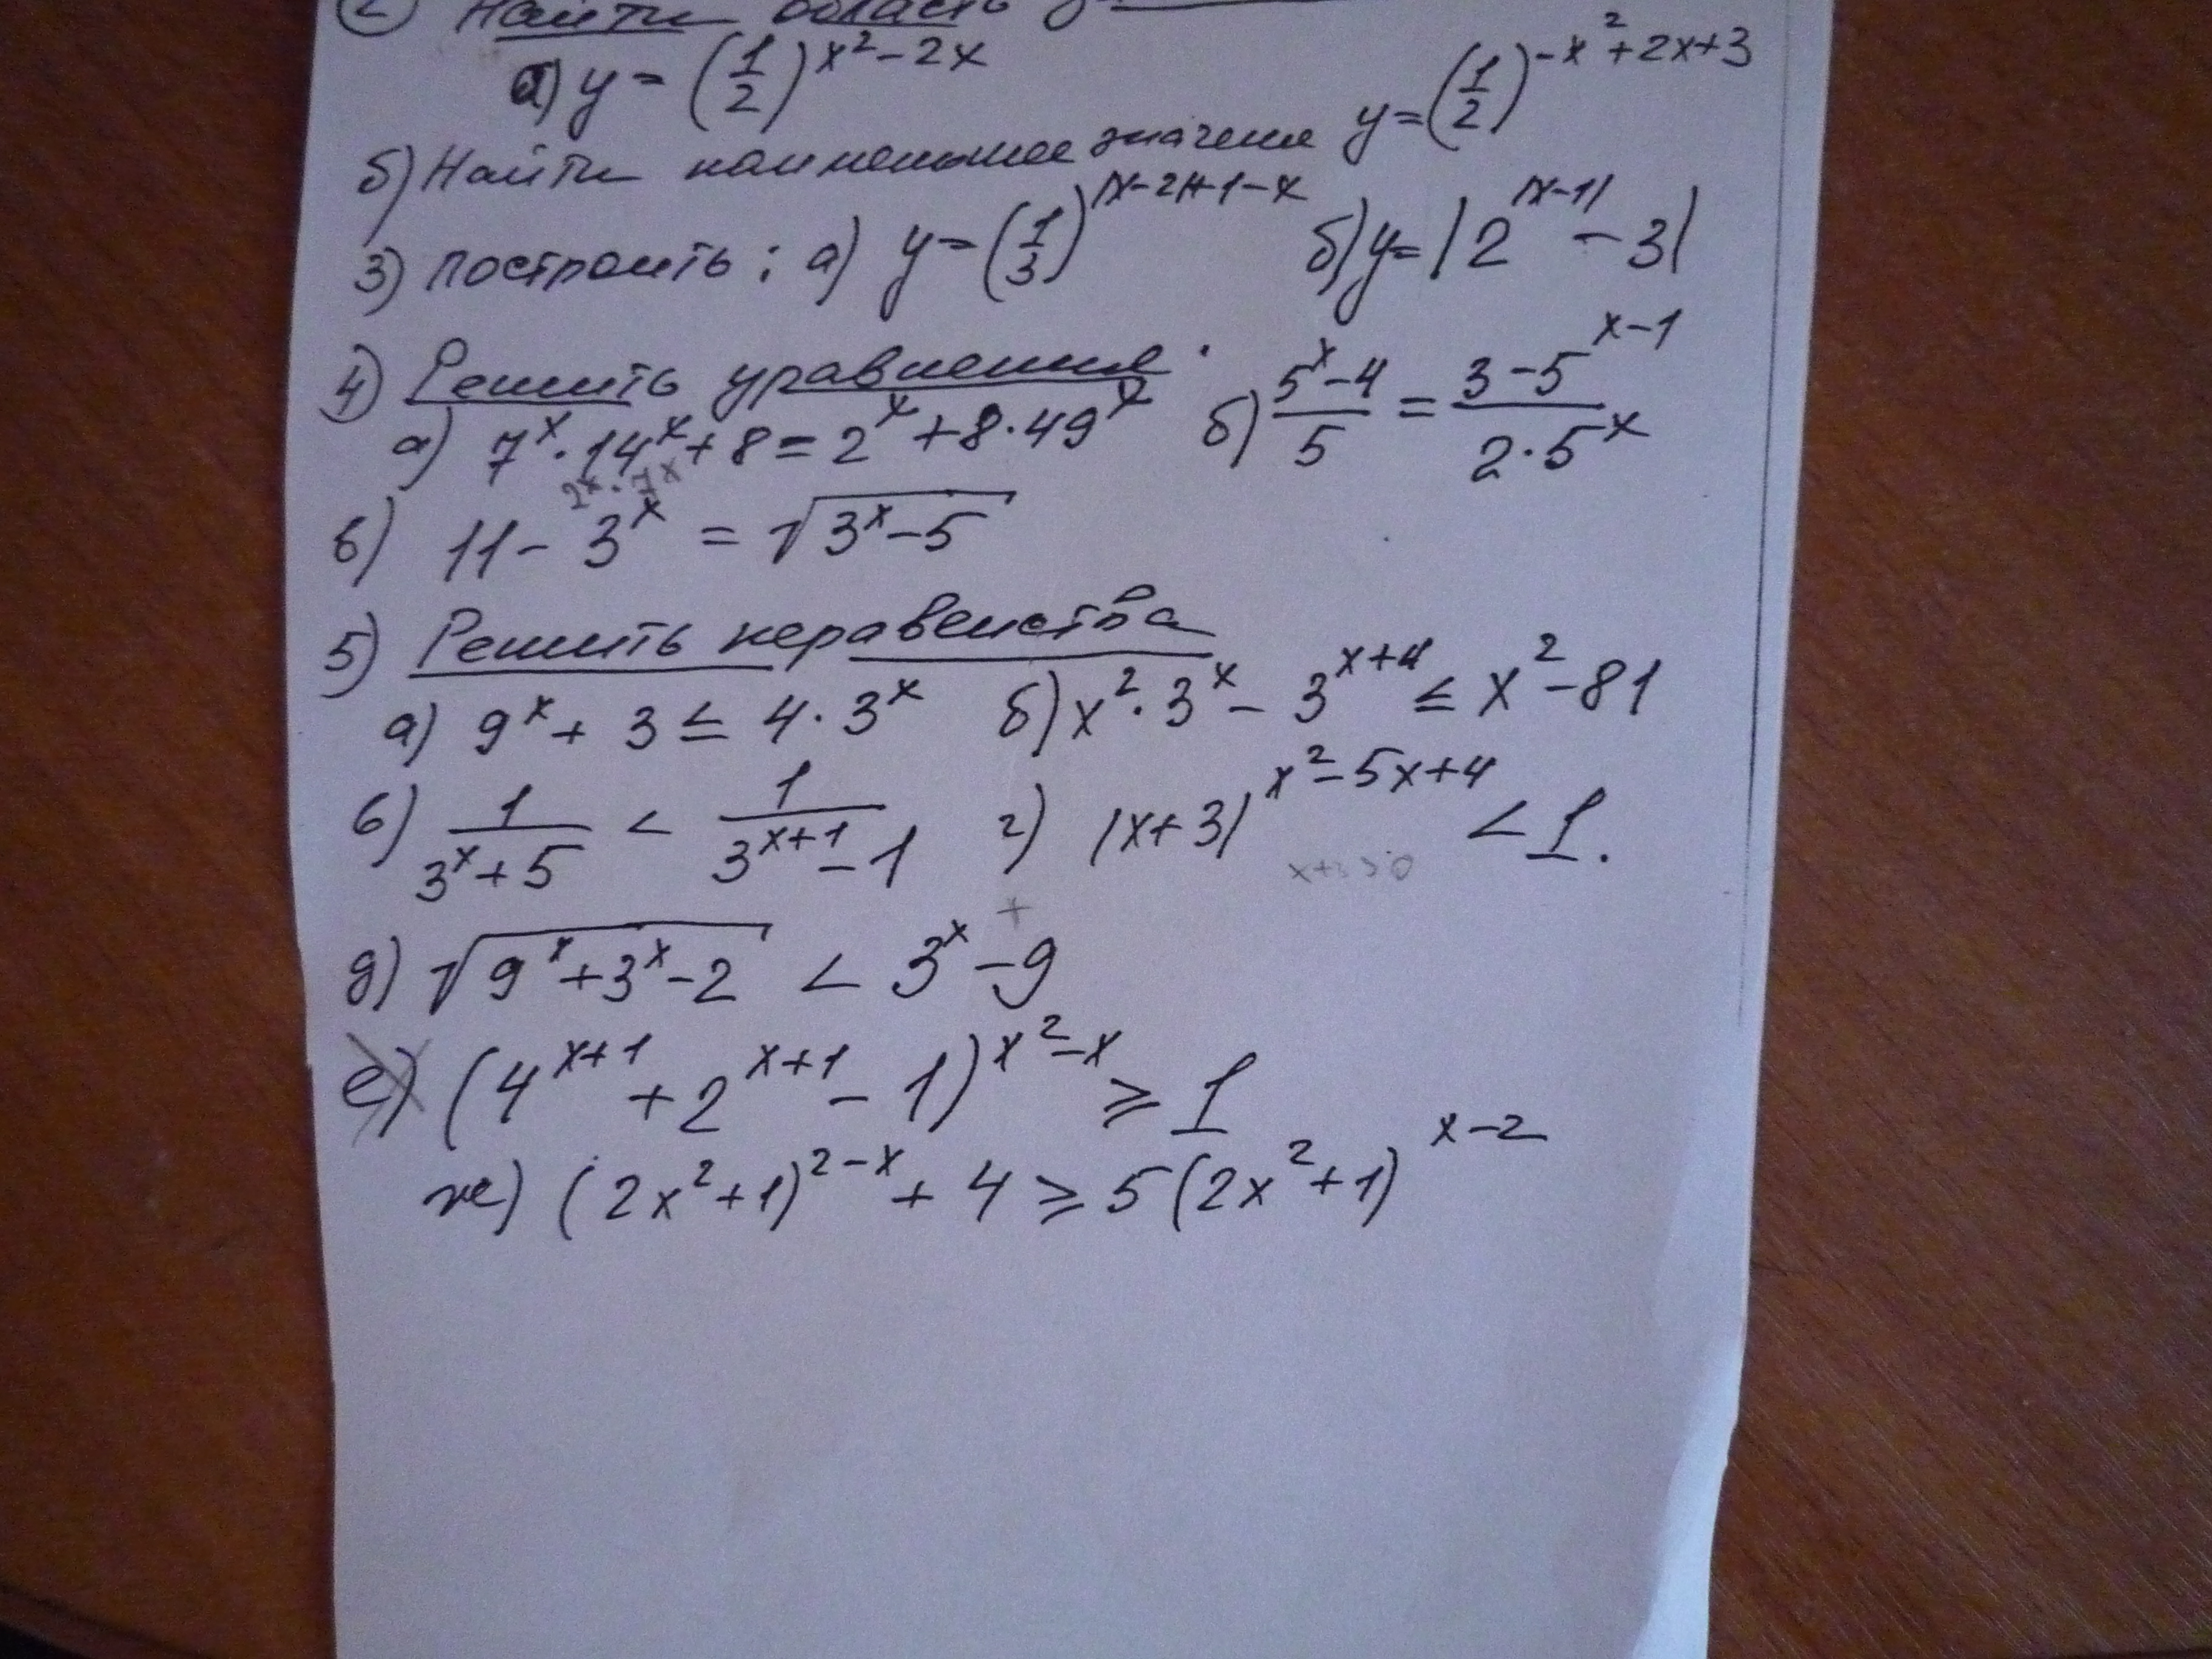 2 Найти область
а) y = (1/2)^(x² - 2x)
б) Найти наименьшее значение y = (1/2)^(-x² + 2x + 3)
3) построить: а) y = (1/3)^(|x-2|+1-x) б) y = |2^|x-1| - 3|
4) Решить уравнения:
а) 7^x · 14^x + 8 = 2^x + 8 · 49^x б) (5^x - 4)/5 = (3 - 5^(x-1))/(2 · 5^x)
2^x · 7^x
в) 11 - 3^x = √(3^x - 5)
5) Решить неравенства
а) 9^x + 3 ≤ 4 · 3^x б) x² · 3^x - 3^(x+4) ≤ x² - 81
в) 1/(3^x + 5) < 1/(3^(x+1) - 1) г) |x+3|^(x² - 5x + 4) < 1.
+
д) √(9^x + 3^x - 2) < 3^x - 9
е) (4^(x+1) + 2^(x+1) - 1)^(x² - x) ≥ 1
ж) (2x² + 1)^(2-x) + 4 ≥ 5(2x² + 1)^(x-2)